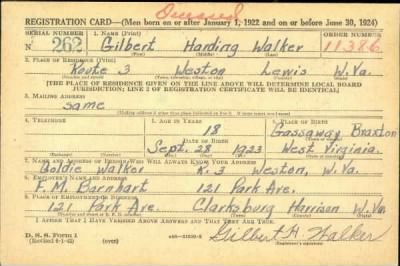 REGISTRATION CARD—(Men born on or after January 1, 1922 and on or before June 30, 1924)
SERIAL NUMBER 1. NAME (Print) ORDER NUMBER
N 262 Gilbert Harding Walker 11386
(First) (Middle) (Last)
2. PLACE OF RESIDENCE (Print)
Route 3 Weston Lewis W. Va.
(Number and street) (Town, township, village, or city) (County) (State)
[THE PLACE OF RESIDENCE GIVEN ON THE LINE ABOVE WILL DETERMINE LOCAL BOARD
JURISDICTION; LINE 2 OF REGISTRATION CERTIFICATE WILL BE IDENTICAL]
3. MAILING ADDRESS
same
[Mailing address if other than place indicated on line 2. If same insert word same]
4. TELEPHONE 5. AGE IN YEARS 6. PLACE OF BIRTH
18 Gassaway Braxton
DATE OF BIRTH
Sept. 28 1923 West Virginia
7. NAME AND ADDRESS OF PERSON WHO WILL ALWAYS KNOW YOUR ADDRESS
Goldie Walker R. 3 Weston, W. Va.
8. EMPLOYER'S NAME AND ADDRESS
F. M. Barnhart 121 Park Ave.
9. PLACE OF EMPLOYMENT OR BUSINESS
121 Park Ave. Clarksburg Harrison W. Va
I AFFIRM THAT I HAVE VERIFIED ABOVE ANSWERS AND THAT THEY ARE TRUE.
D. S. S. Form 1
(Revised 6-1-42) (over) Gilbert H. Walker